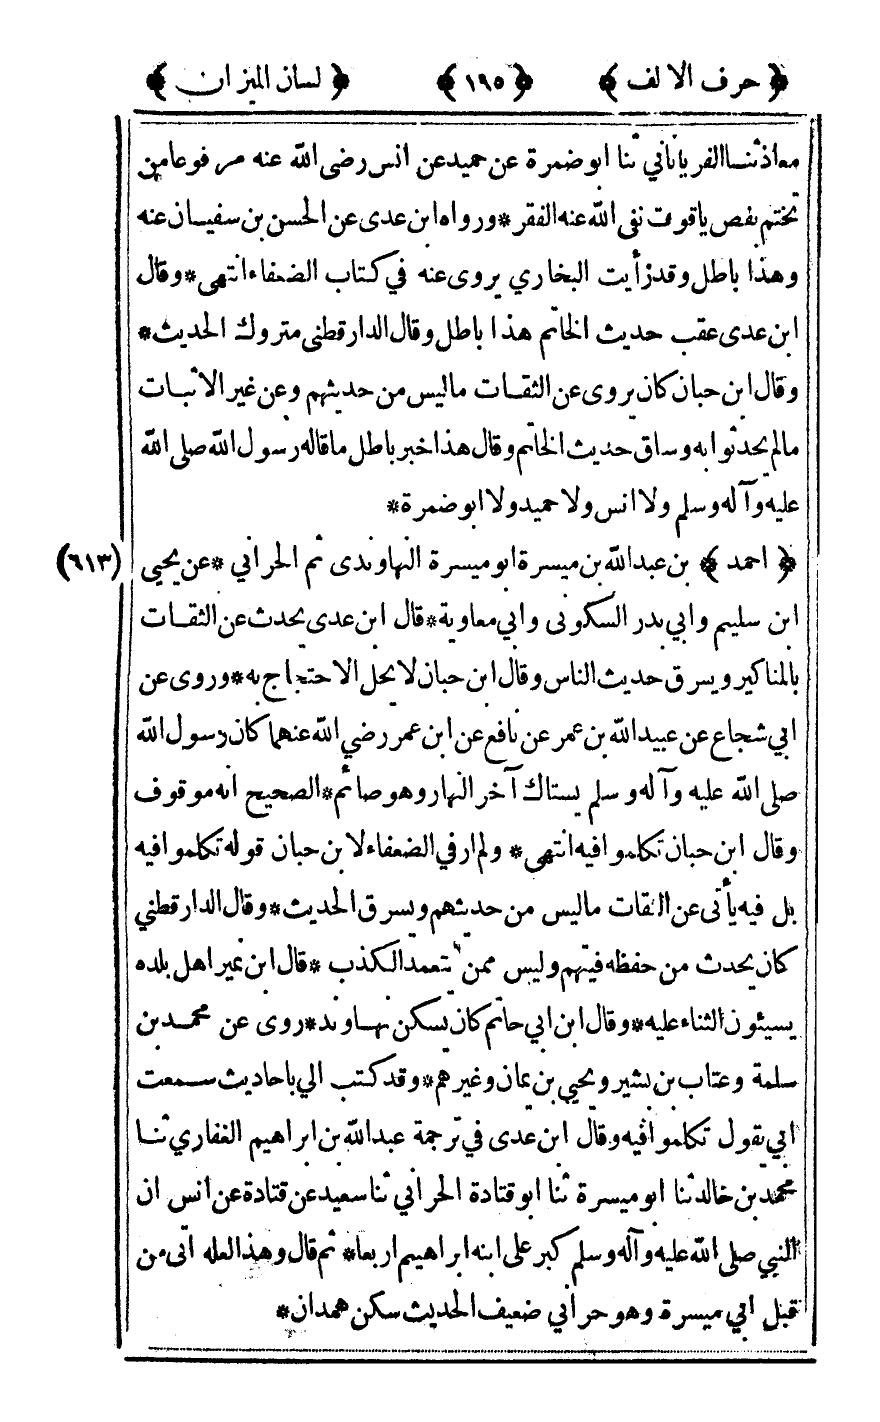 ﴿ حرف الالف ﴾ ﴿ ١٩٥ ﴾ ﴿ لسان الميزان ﴾
معاذ ثنا الفريانانى ثنا ابو ضمرة عن حميد عن انس رضى الله عنه مرفوعا من
تختم بفص ياقوت نفى الله عنه الفقر * ورواه ابن عدى عن الحسن بن سفيان عنه
وهذا باطل وقد رأيت البخاري يروى عنه في كتاب الضعفاء انتهى * وقال
ابن عدى عقب حديث الخاتم هذا باطل وقال الدارقطنى متروك الحديث *
وقال ابن حبان كان يروى عن الثقات ماليس من حديثهم وعن غير الاثبات
مالم يحدثوا به وساق حديث الخاتم وقال هذا خبر باطل ماقاله رسول الله صلى الله
عليه وآله وسلم ولا انس ولا حميد ولا ابو ضمرة *
﴿ احمد ﴾ بن عبد الله بن ميسرة ابو ميسرة النهاوندى ثم الحراني * عن يحيى (٦١٣)
ابن سليم وابي بدر السكونى وابي معاوية * قال ابن عدى يحدث عن الثقات
بالمناكير ويسرق حديث الناس وقال ابن حبان لا يحل الاحتجاج به * وروى عن
ابي شجاع عن عبيد الله بن عمر عن نافع عن ابن عمر رضي الله عنهما كان رسول الله
صلى الله عليه وآله وسلم يستاك آخر النهار وهو صائم * الصحيح انه موقوف
وقال ابن حبان تكلموا فيه انتهى * ولم ار في الضعفاء لابن حبان قوله تكلموا فيه
بل فيه يأتى عن الثقات ماليس من حديثهم ويسرق الحديث * وقال الدارقطني
كان يحدث من حفظه فيتهم وليس ممن يتعمد الكذب * قال ابن نمير اهل بلده
يسيئون الثناء عليه * وقال ابن ابي حاتم كان يسكن نهاوند * روى عن محمد بن
سلمة وعتاب بن بشير ويحيى بن يمان وغيرهم * وقد كتب الي باحاديث سمعت
ابي يقول تكلموا فيه وقال ابن عدى في ترجمة عبد الله بن ابراهيم الغفاري ثنا
محمد بن خالد ثنا ابو ميسرة ثنا ابو قتادة الحراني ثنا سعيد عن قتادة عن انس ان
النبي صلى الله عليه وآله وسلم كبر على ابنه ابراهيم اربعا * ثم قال وهذا لعله اتى من
قبل ابي ميسرة وهو حراني ضعيف الحديث سكن همدان *